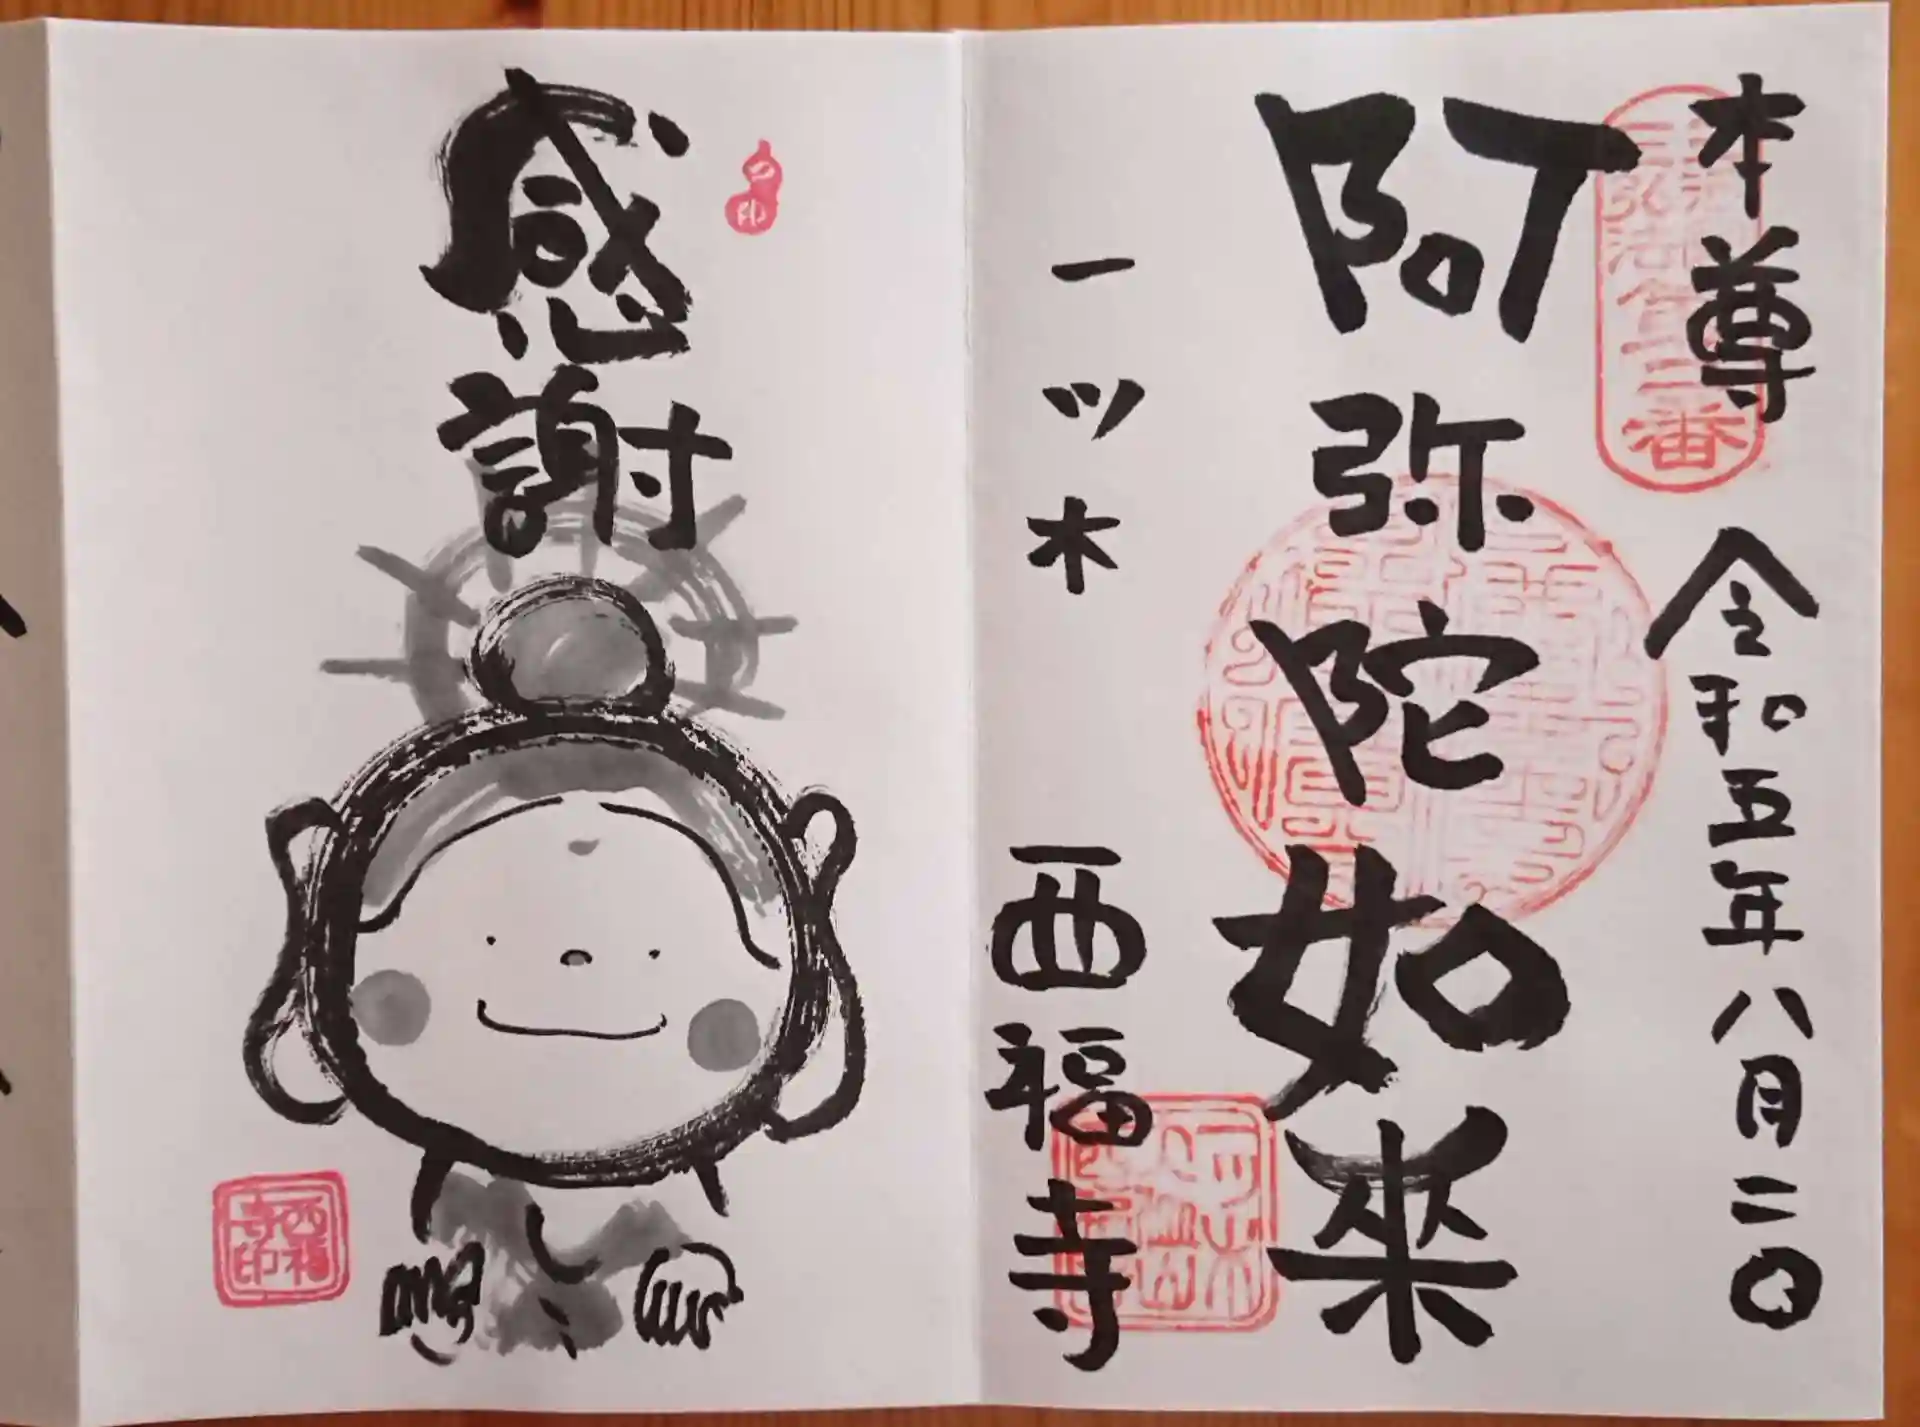 本尊 令和五年八月二〇
阿弥陀如来
一ツ木 西福寺
感謝
西福
寺印